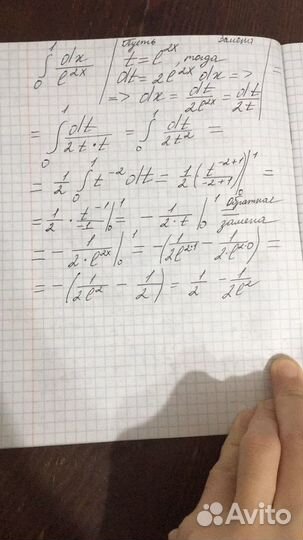 ∫₀¹ dx/e^{2x} | Пусть t = e^{2x}, тогда Замена
dt = 2e^{2x} dx =>
=> dx = dt/2e^{2x} = dt/2t | =
= ∫₀¹ dt/2t·t = ∫₀¹ dt/2t² =
= 1/2 ∫₀¹ t^{-2} dt = 1/2 (t^{-2+1}/-2+1)|₀¹ =
= 1/2 · t^{-1}/-1 |₀¹ = - 1/2·t |₀¹ Обратная замена
= - 1/2·e^{2x} |₀¹ = -(1/2e^{2·1} - 1/2e^{2·0}) =
= -(1/2e² - 1/2) = 1/2 - 1/2e²
Avito